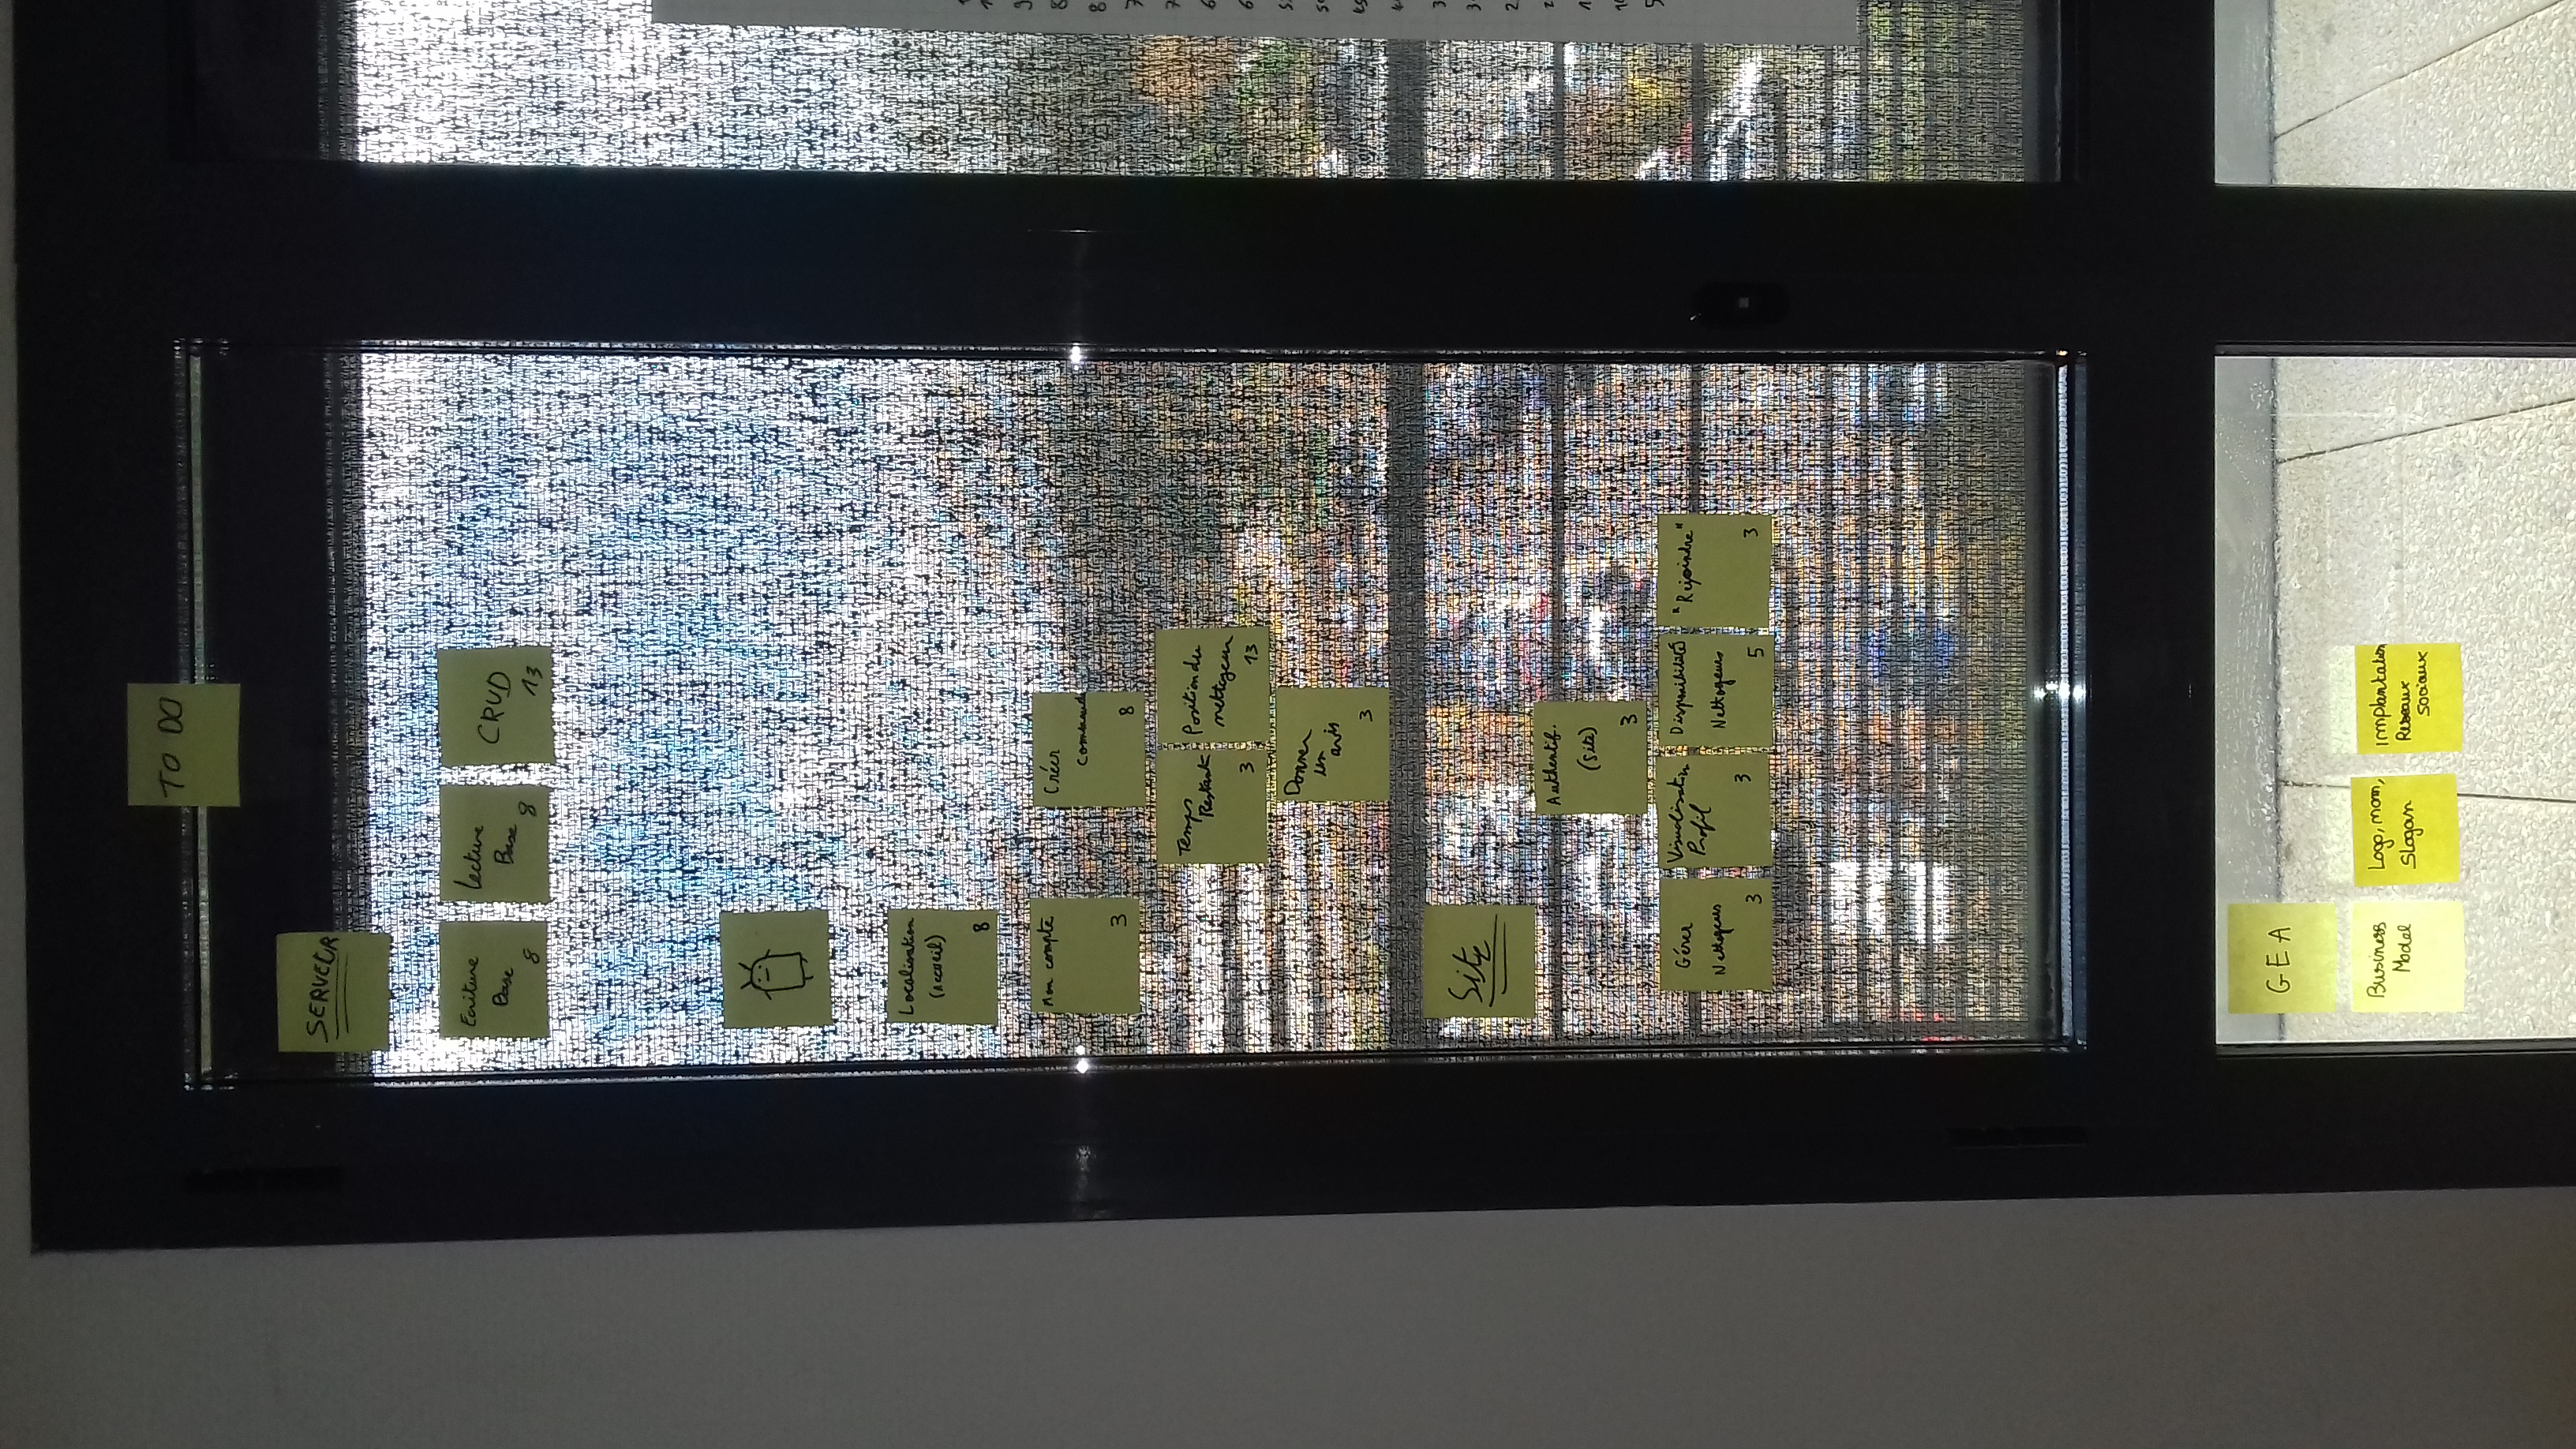 TO DO
SERVEUR
Ecriture
Base
8
Lecture
Base
8
CRUD
13
Localisation
(accueil)
8
Mon compte
3
Créer
Commande
8
Temps
Restant
3
Position du
nettoyeur
13
Donner
un
avis
3
Site
Authentif.
(Site)
3
Gérer
Nettoyeurs
3
Visualisation
Profil
3
Disponibilité
Nettoyeurs
5
"Rejoindre"
3
GEA
Business
Model
Logo, nom,
Slogan
Implantation
Réseaux
Sociaux